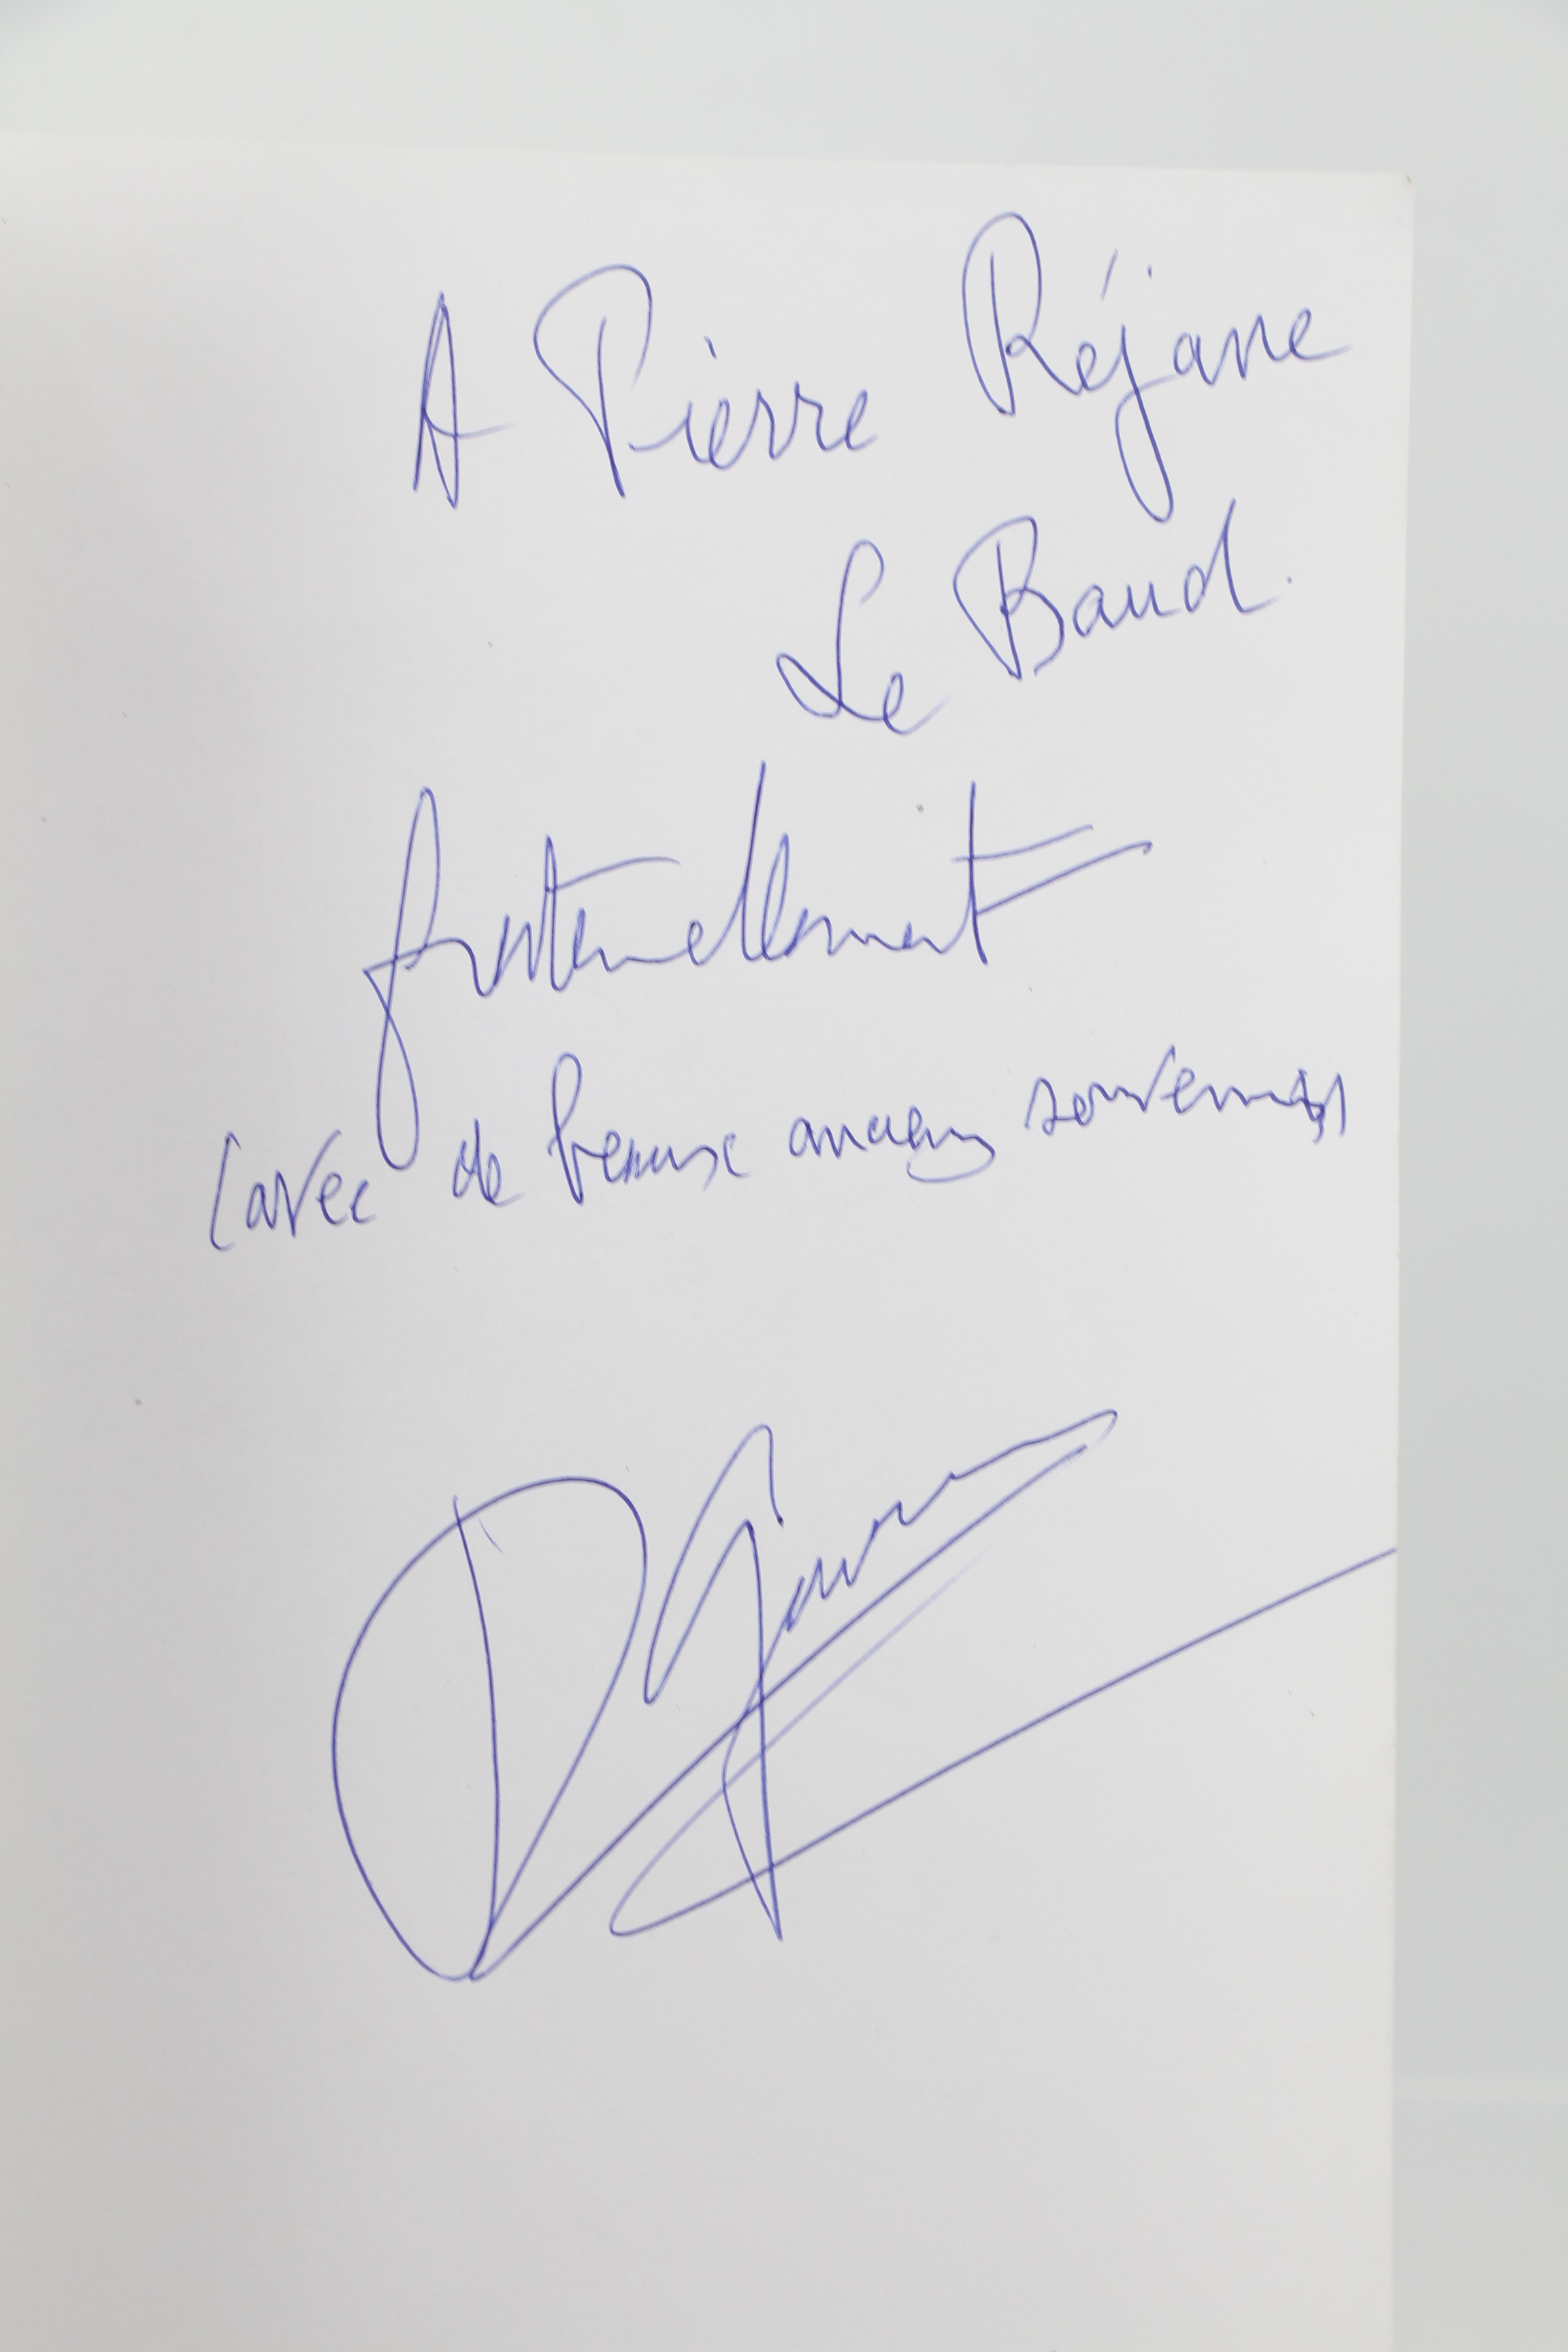 A Pierre Réjane
Le Baud.
fraternellement
(avec de beaux anciens souvenirs)